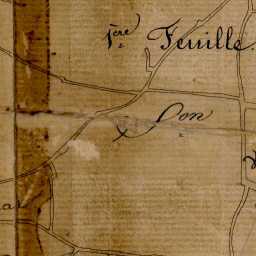 1ère Feuille.
Don